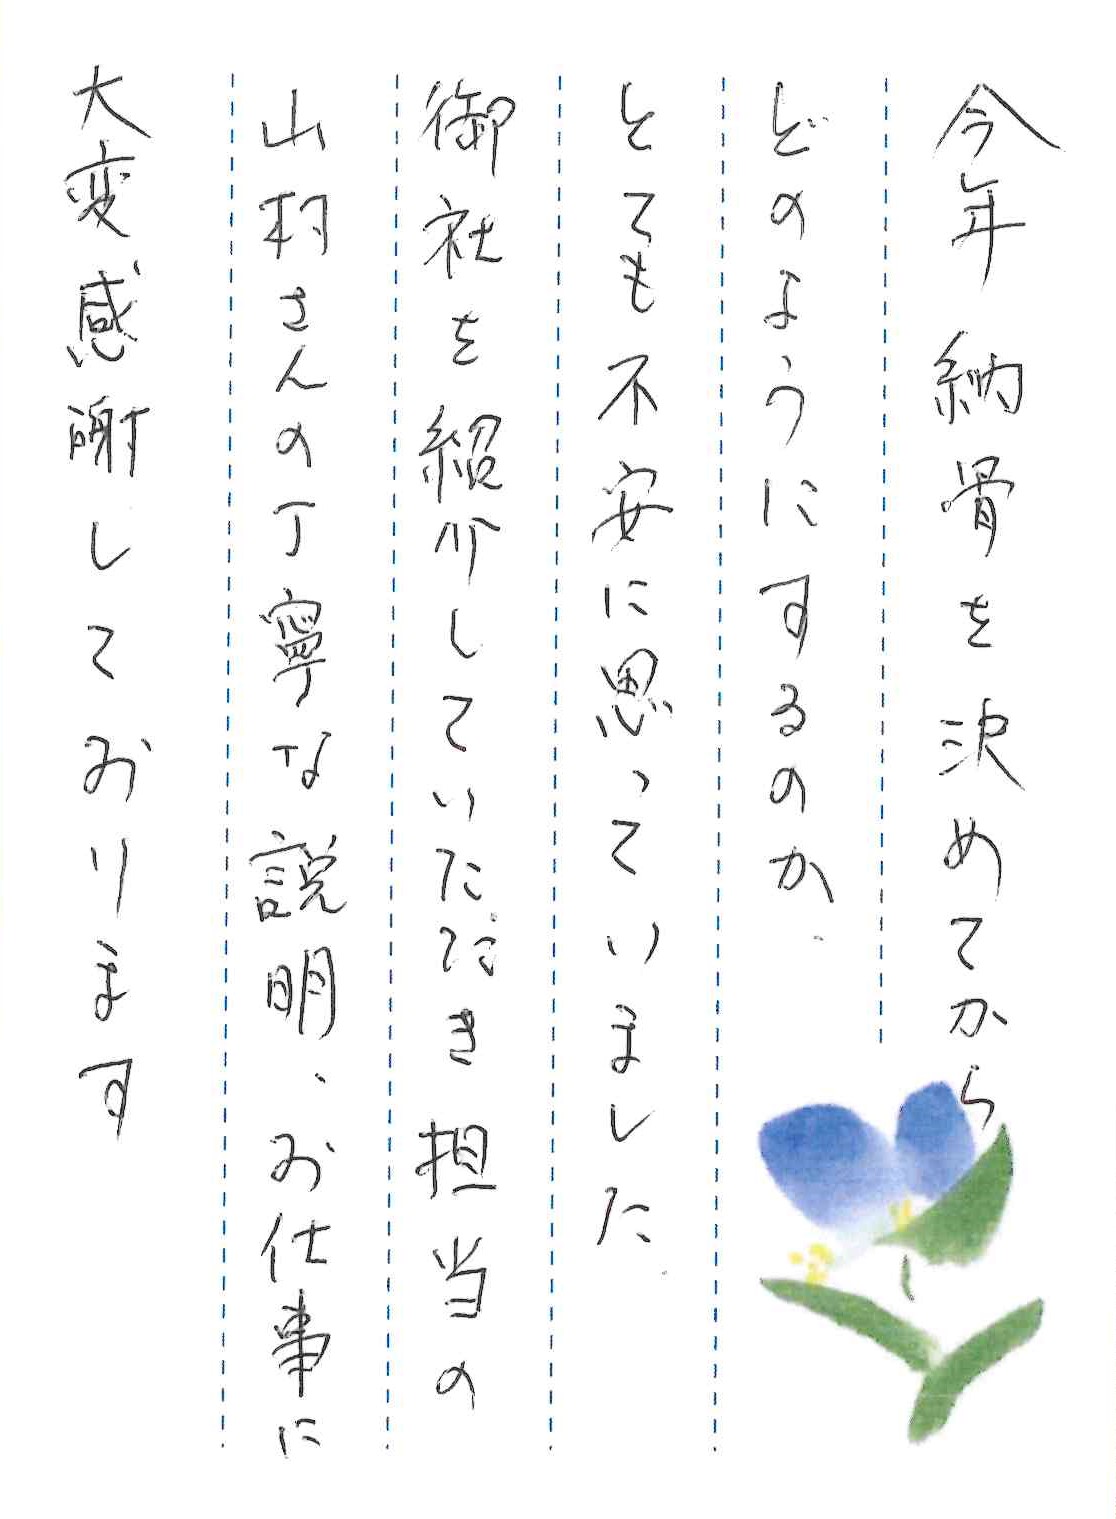 今年納骨を決めてから
どのようにするのか、
とても不安に思っていました
御社を紹介していただき担当の
山村さんの丁寧な説明、お仕事に
大変感謝しております